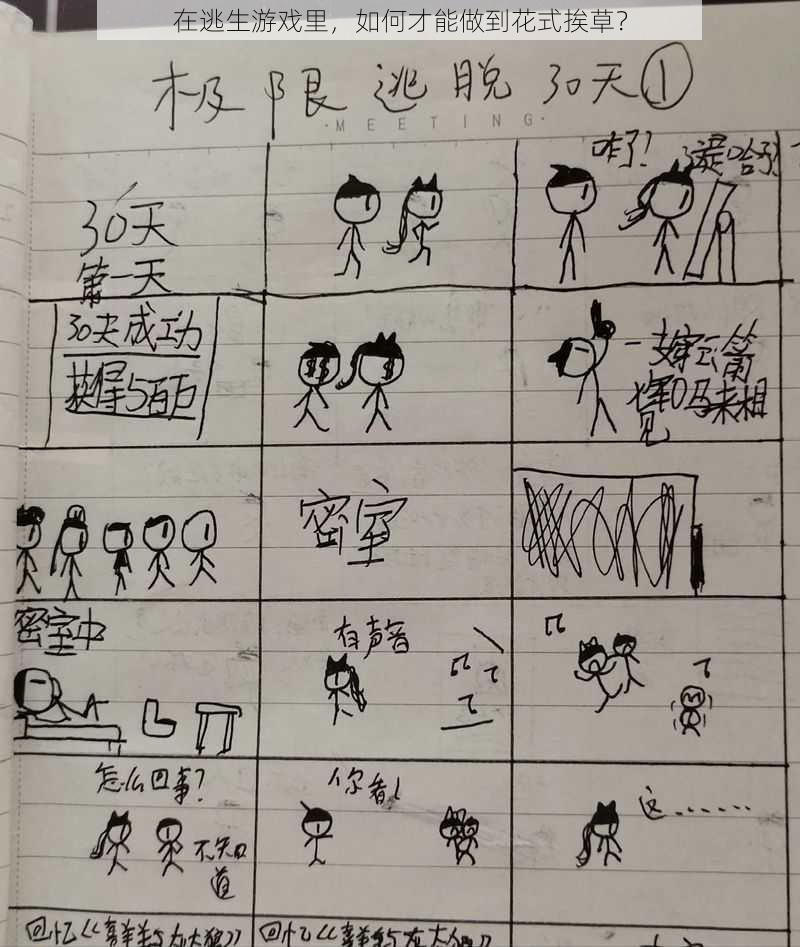 在逃生游戏里，如何才能做到花式挨草？
极限逃脱30天①
·MEETING·
30天
第一天
咋了？
30天成功
获得5百万
一支穿云箭
军马来相
见
密室
密室中
有声音
怎么回事？
不知
道
你看！
这……
回忆《喜羊羊与灰太狼》
回忆《喜羊羊与灰太狼》